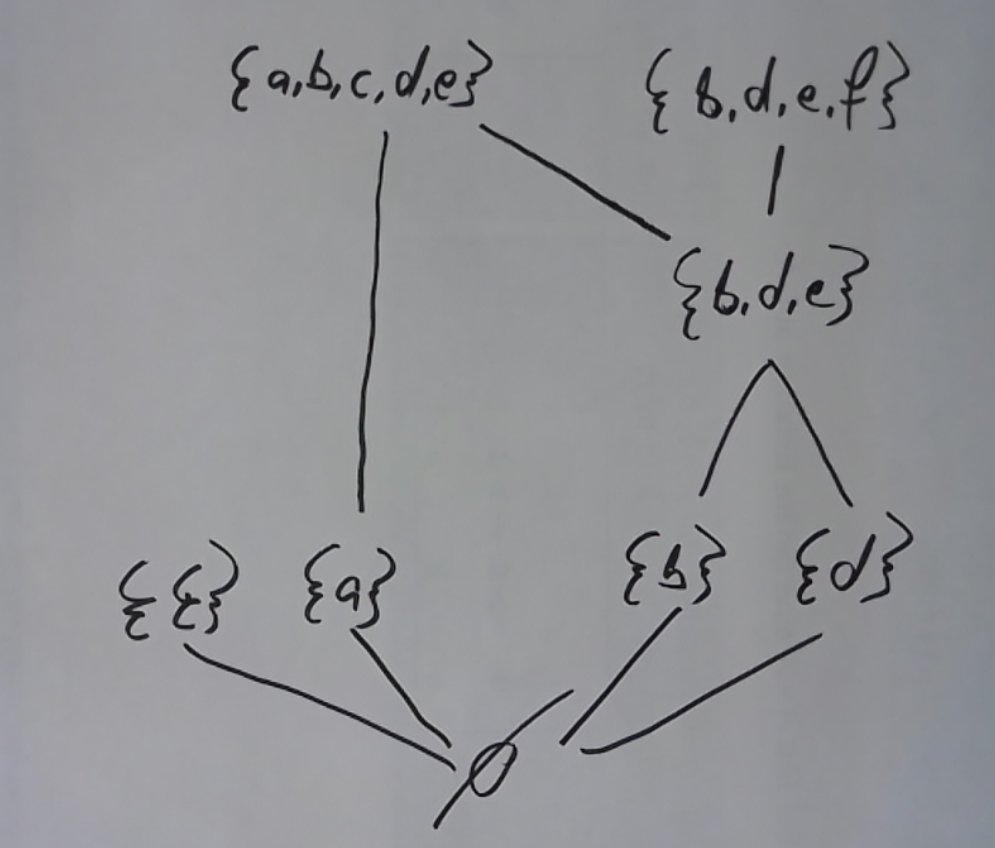 {a,b,c,d,e} {b,d,e,f}
{b,d,e}
{ξ} {a} {b} {d}
∅